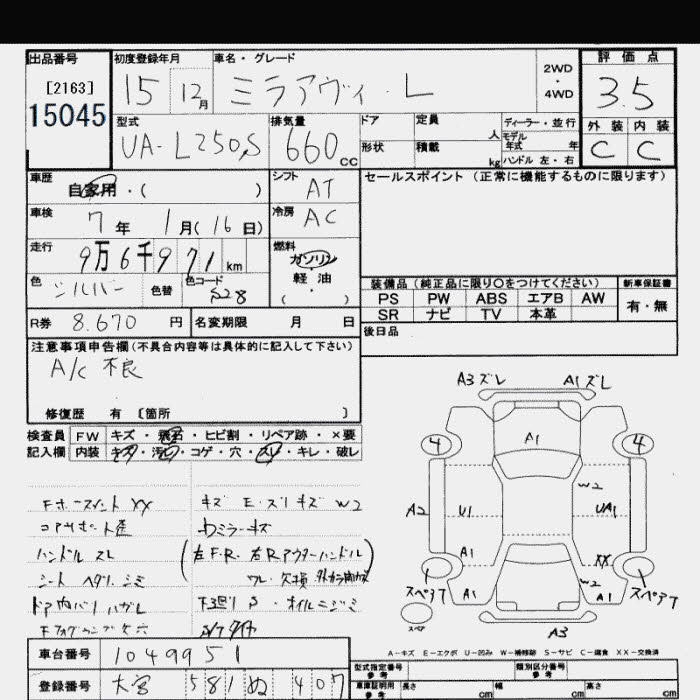 出品番号 初度登録年月 車名・グレード 評価点
[2163]
15045
15 12月 ミラアヴィ・L 2WD・4WD 3.5
型式 排気量 ドア 定員 人 ディーラー・並行 外装 内装
UA-L250S 660cc 形状 積載 kg モデル年式 年 ハンドル 左・右 C C
車歴 自家用・( ) シフト AT セールスポイント(正常に機能するものに限ります)
車検 7年 1月(16日) 冷房 AC
走行 9万6千971km 燃料 ガソリン・軽油・( )
色 シルバー 色替 色コード S28
装備品(純正品に限り○をつけてください) 新車保証書
PS PW ABS エアB AW 有・無
SR ナビ TV 本革
R券 8.670円 名変期限 月 日 後日品
注意事項申告欄(不具合内容等は具体的に記入して下さい)
A/C 不良
修復歴 有 〔箇所 〕
検査員 FW キズ・飛石・ヒビ割・リペア跡・×要
記入欄 内装 キズ・汚レ・コゲ・穴・スレ・キレ・破レ
XX キズ E・ズリキズ W2
コアサポート歪 Dミラーキズ
ハンドル スレ (左F・R・右Rアウターハンドル
シート ヘタリ シミ
ドア内バリ ハガレ 下廻りS・オイルニジミ
A3ズレ A1ズレ
4 A1 4
W2
A2 U1 UA1
A1 XX
スペアT A1 W2 A1 スペアT
スペア A3
A-キズ E-エクボ U-凹み W-補修跡 S-サビ C-腐食 XX-交換済
車台番号 1049951 型式指定番号 参考 類別区分番号 参考
登録番号 大宮 581 ぬ 407 車庫証明用 参考 長さ cm 幅 cm 高さ cm